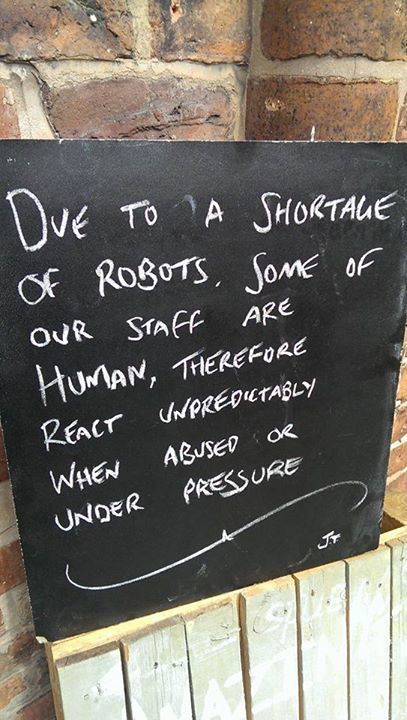 DUE TO A SHORTAGE
OF ROBOTS, SOME OF
OUR STAFF ARE
HUMAN, THEREFORE
REACT UNPREDICTABLY
WHEN ABUSED OR
UNDER PRESSURE
JT